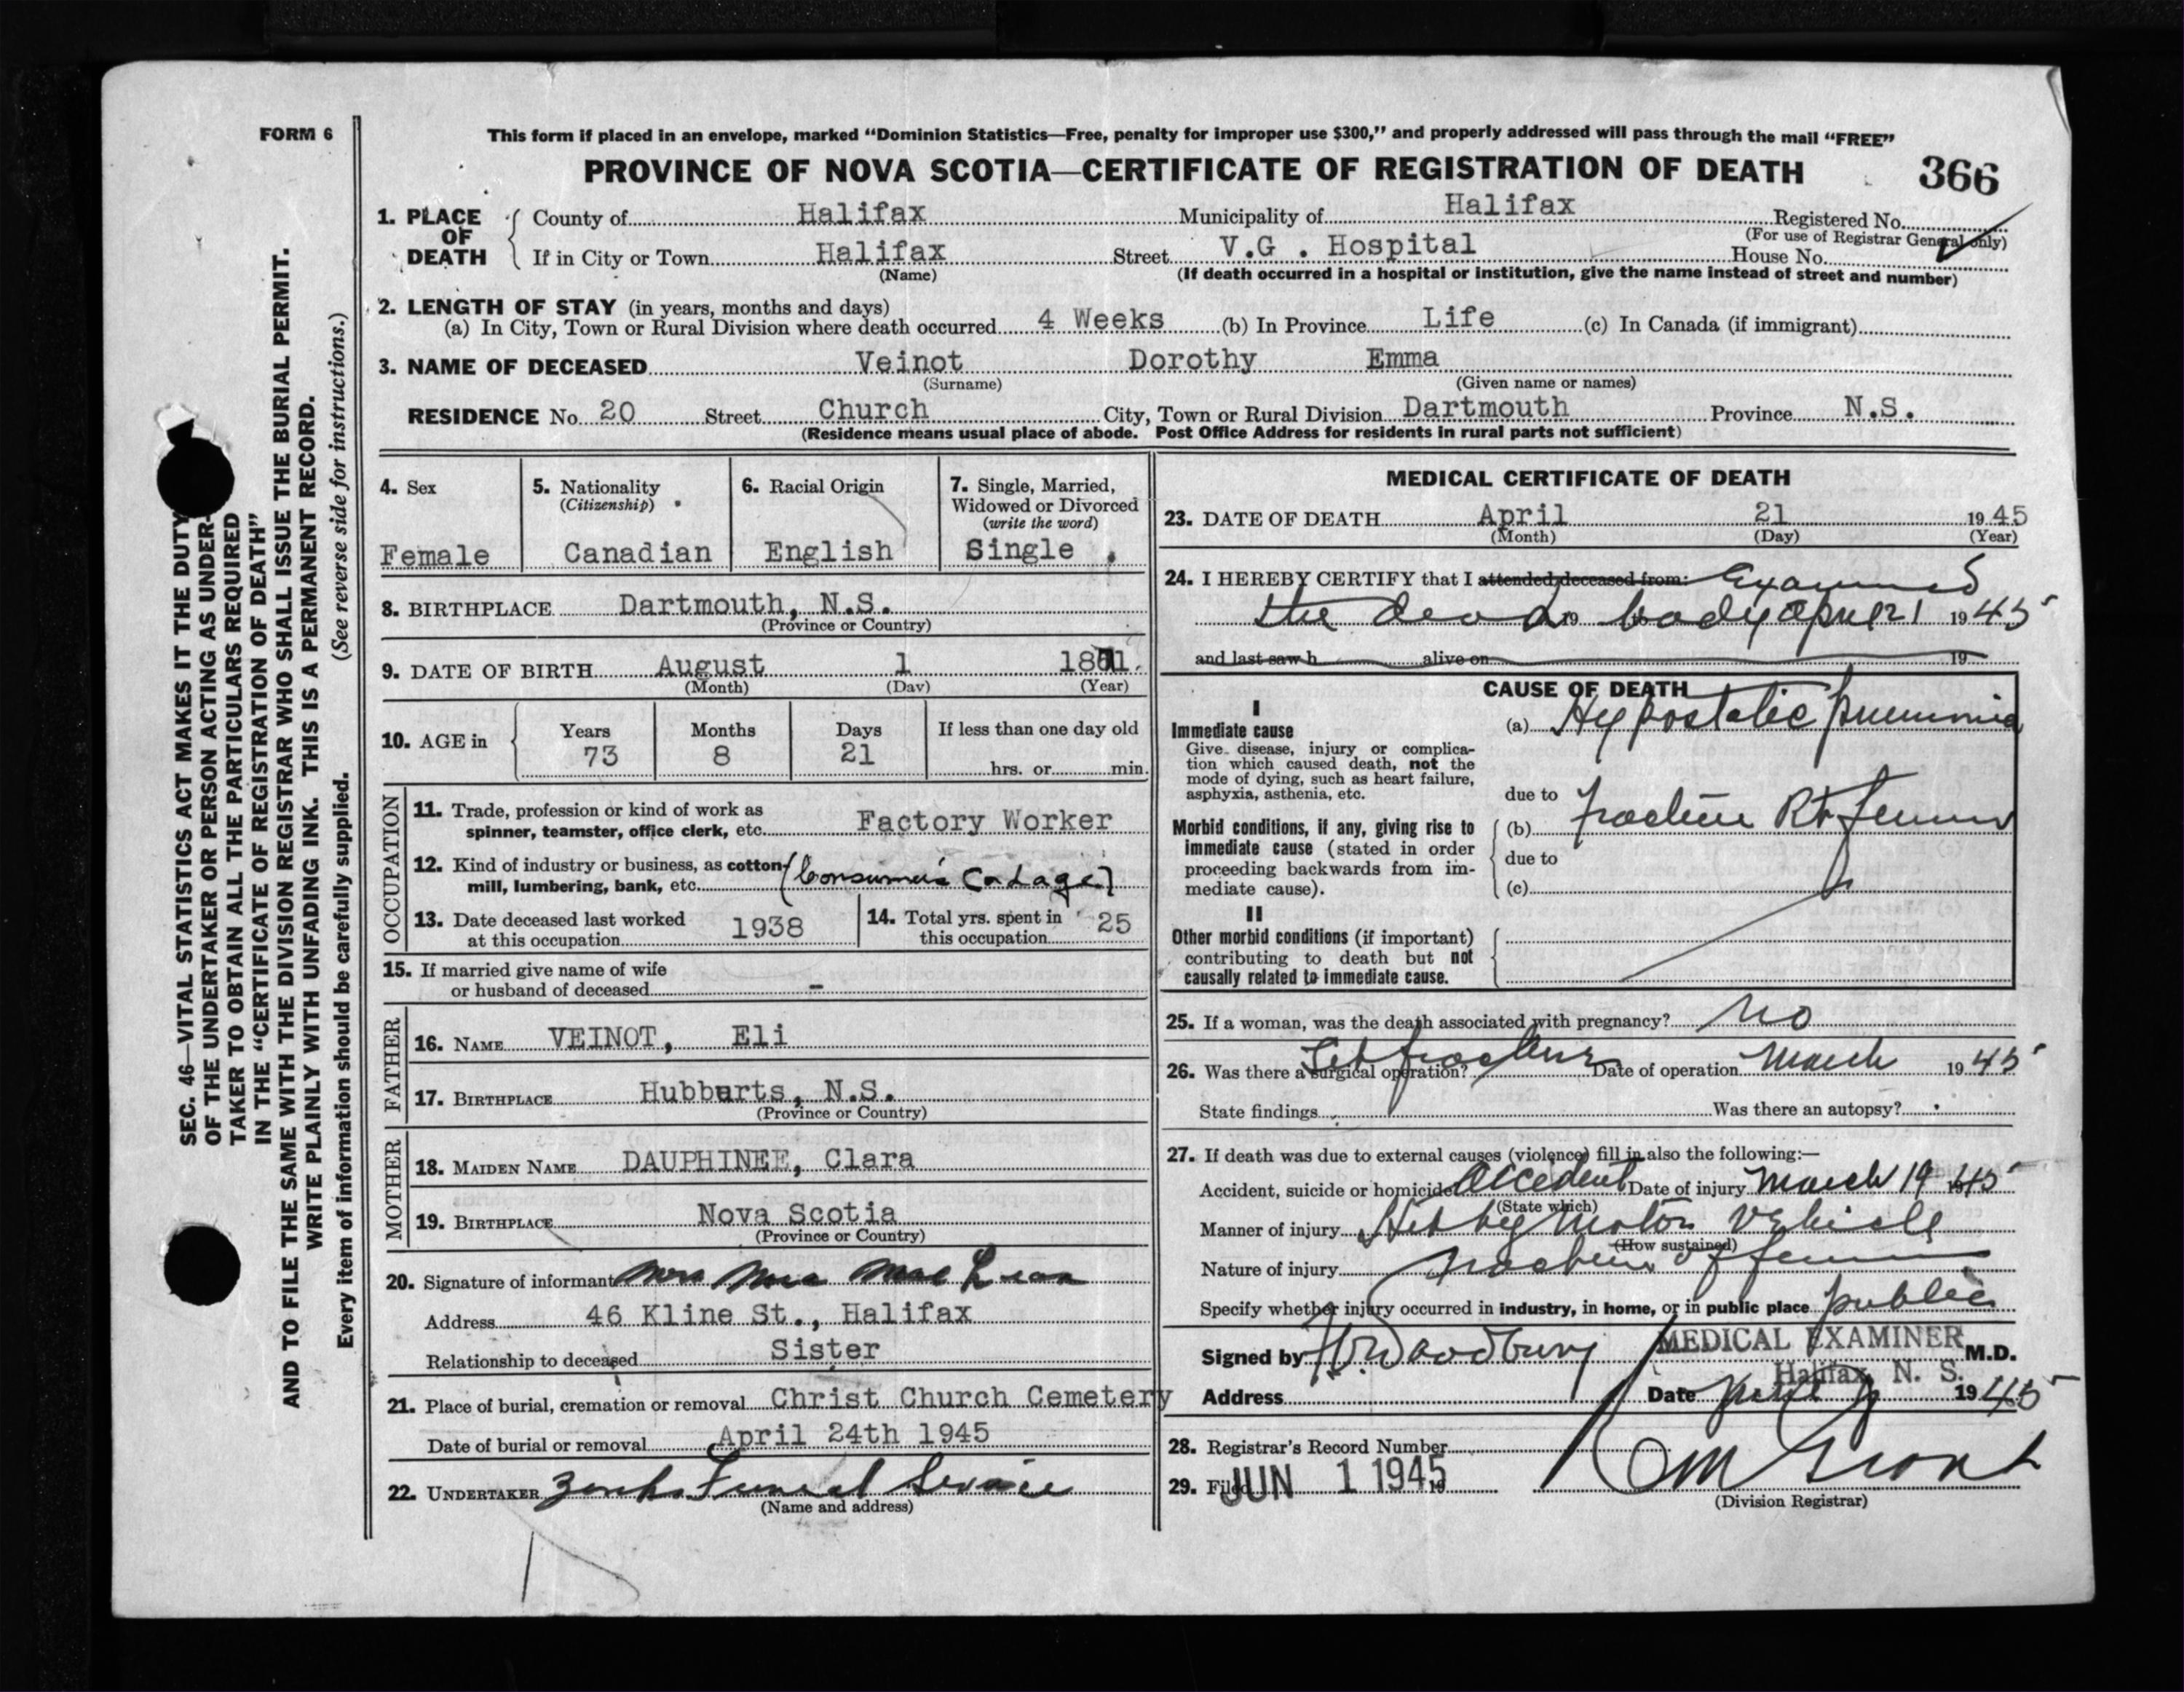 FORM 6
This form if placed in an envelope, marked “Dominion Statistics—Free, penalty for improper use $300,” and properly addressed will pass through the mail “FREE”
PROVINCE OF NOVA SCOTIA—CERTIFICATE OF REGISTRATION OF DEATH 366
1. PLACE OF DEATH
County of Halifax Municipality of Halifax Registered No.
(For use of Registrar General only)
If in City or Town Halifax Street V.G . Hospital House No.
(Name) (If death occurred in a hospital or institution, give the name instead of street and number)
2. LENGTH OF STAY (in years, months and days)
(a) In City, Town or Rural Division where death occurred 4 Weeks (b) In Province Life (c) In Canada (if immigrant)
3. NAME OF DECEASED Veinot Dorothy Emma
(Surname) (Given name or names)
RESIDENCE No. 20 Street Church City, Town or Rural Division Dartmouth Province N.S.
(Residence means usual place of abode. Post Office Address for residents in rural parts not sufficient)
SEC. 46—VITAL STATISTICS ACT MAKES IT THE DUTY
OF THE UNDERTAKER OR PERSON ACTING AS UNDER-
TAKER TO OBTAIN ALL THE PARTICULARS REQUIRED
IN THE “CERTIFICATE OF REGISTRATION OF DEATH”
AND TO FILE THE SAME WITH THE DIVISION REGISTRAR WHO SHALL ISSUE THE BURIAL PERMIT.
WRITE PLAINLY WITH UNFADING INK. THIS IS A PERMANENT RECORD.
Every item of information should be carefully supplied. (See reverse side for instructions.)
4. Sex
Female
5. Nationality
(Citizenship)
Canadian
6. Racial Origin
English
7. Single, Married,
Widowed or Divorced
(write the word)
Single .
8. BIRTHPLACE Dartmouth, N.S.
(Province or Country)
9. DATE OF BIRTH August 1 1871.
(Month) (Day) (Year)
10. AGE in
Years Months Days If less than one day old
73 8 21
hrs. or min.
OCCUPATION
11. Trade, profession or kind of work as
spinner, teamster, office clerk, etc. Factory Worker
12. Kind of industry or business, as cotton
mill, lumbering, bank, etc. (Consumer's Cordage)
13. Date deceased last worked
at this occupation 1938
14. Total yrs. spent in
this occupation 25
15. If married give name of wife
or husband of deceased -
FATHER
16. NAME VEINOT, Eli
17. BIRTHPLACE Hubbarts, N.S.
(Province or Country)
MOTHER
18. MAIDEN NAME DAUPHINEE, Clara
19. BIRTHPLACE Nova Scotia
(Province or Country)
20. Signature of informant Mrs Mac Lean
Address 46 Kline St., Halifax
Relationship to deceased Sister
21. Place of burial, cremation or removal Christ Church Cemetery
Date of burial or removal April 24th 1945
22. UNDERTAKER Funeral Service
(Name and address)
MEDICAL CERTIFICATE OF DEATH
23. DATE OF DEATH April 21 1945
(Month) (Day) (Year)
24. I HEREBY CERTIFY that I attended deceased from: Examined
the dead 19 body April 21 1945
and last saw h alive on 19
CAUSE OF DEATH
I
Immediate cause
Give disease, injury or complica-
tion which caused death, not the
mode of dying, such as heart failure,
asphyxia, asthenia, etc.
(a) Hypostatic pneumonia
due to
Morbid conditions, if any, giving rise to
immediate cause (stated in order
proceeding backwards from im-
mediate cause).
(b) fracture Rt femur
due to
(c)
II
Other morbid conditions (if important)
contributing to death but not
causally related to immediate cause.
25. If a woman, was the death associated with pregnancy? No
26. Was there a surgical operation? Set fracture Date of operation March 1945
State findings Was there an autopsy?
27. If death was due to external causes (violence) fill in also the following:—
Accident, suicide or homicide Accident Date of injury March 19 1945
(State which)
Manner of injury Hit by Motor Vehicle
(How sustained)
Nature of injury fracture of femur
Specify whether injury occurred in industry, in home, or in public place public
Signed by Woodbury MEDICAL EXAMINER M.D.
Halifax, N. S.
Address Date 1945
28. Registrar's Record Number
29. Filed JUN 1 1945 19
Grant
(Division Registrar)